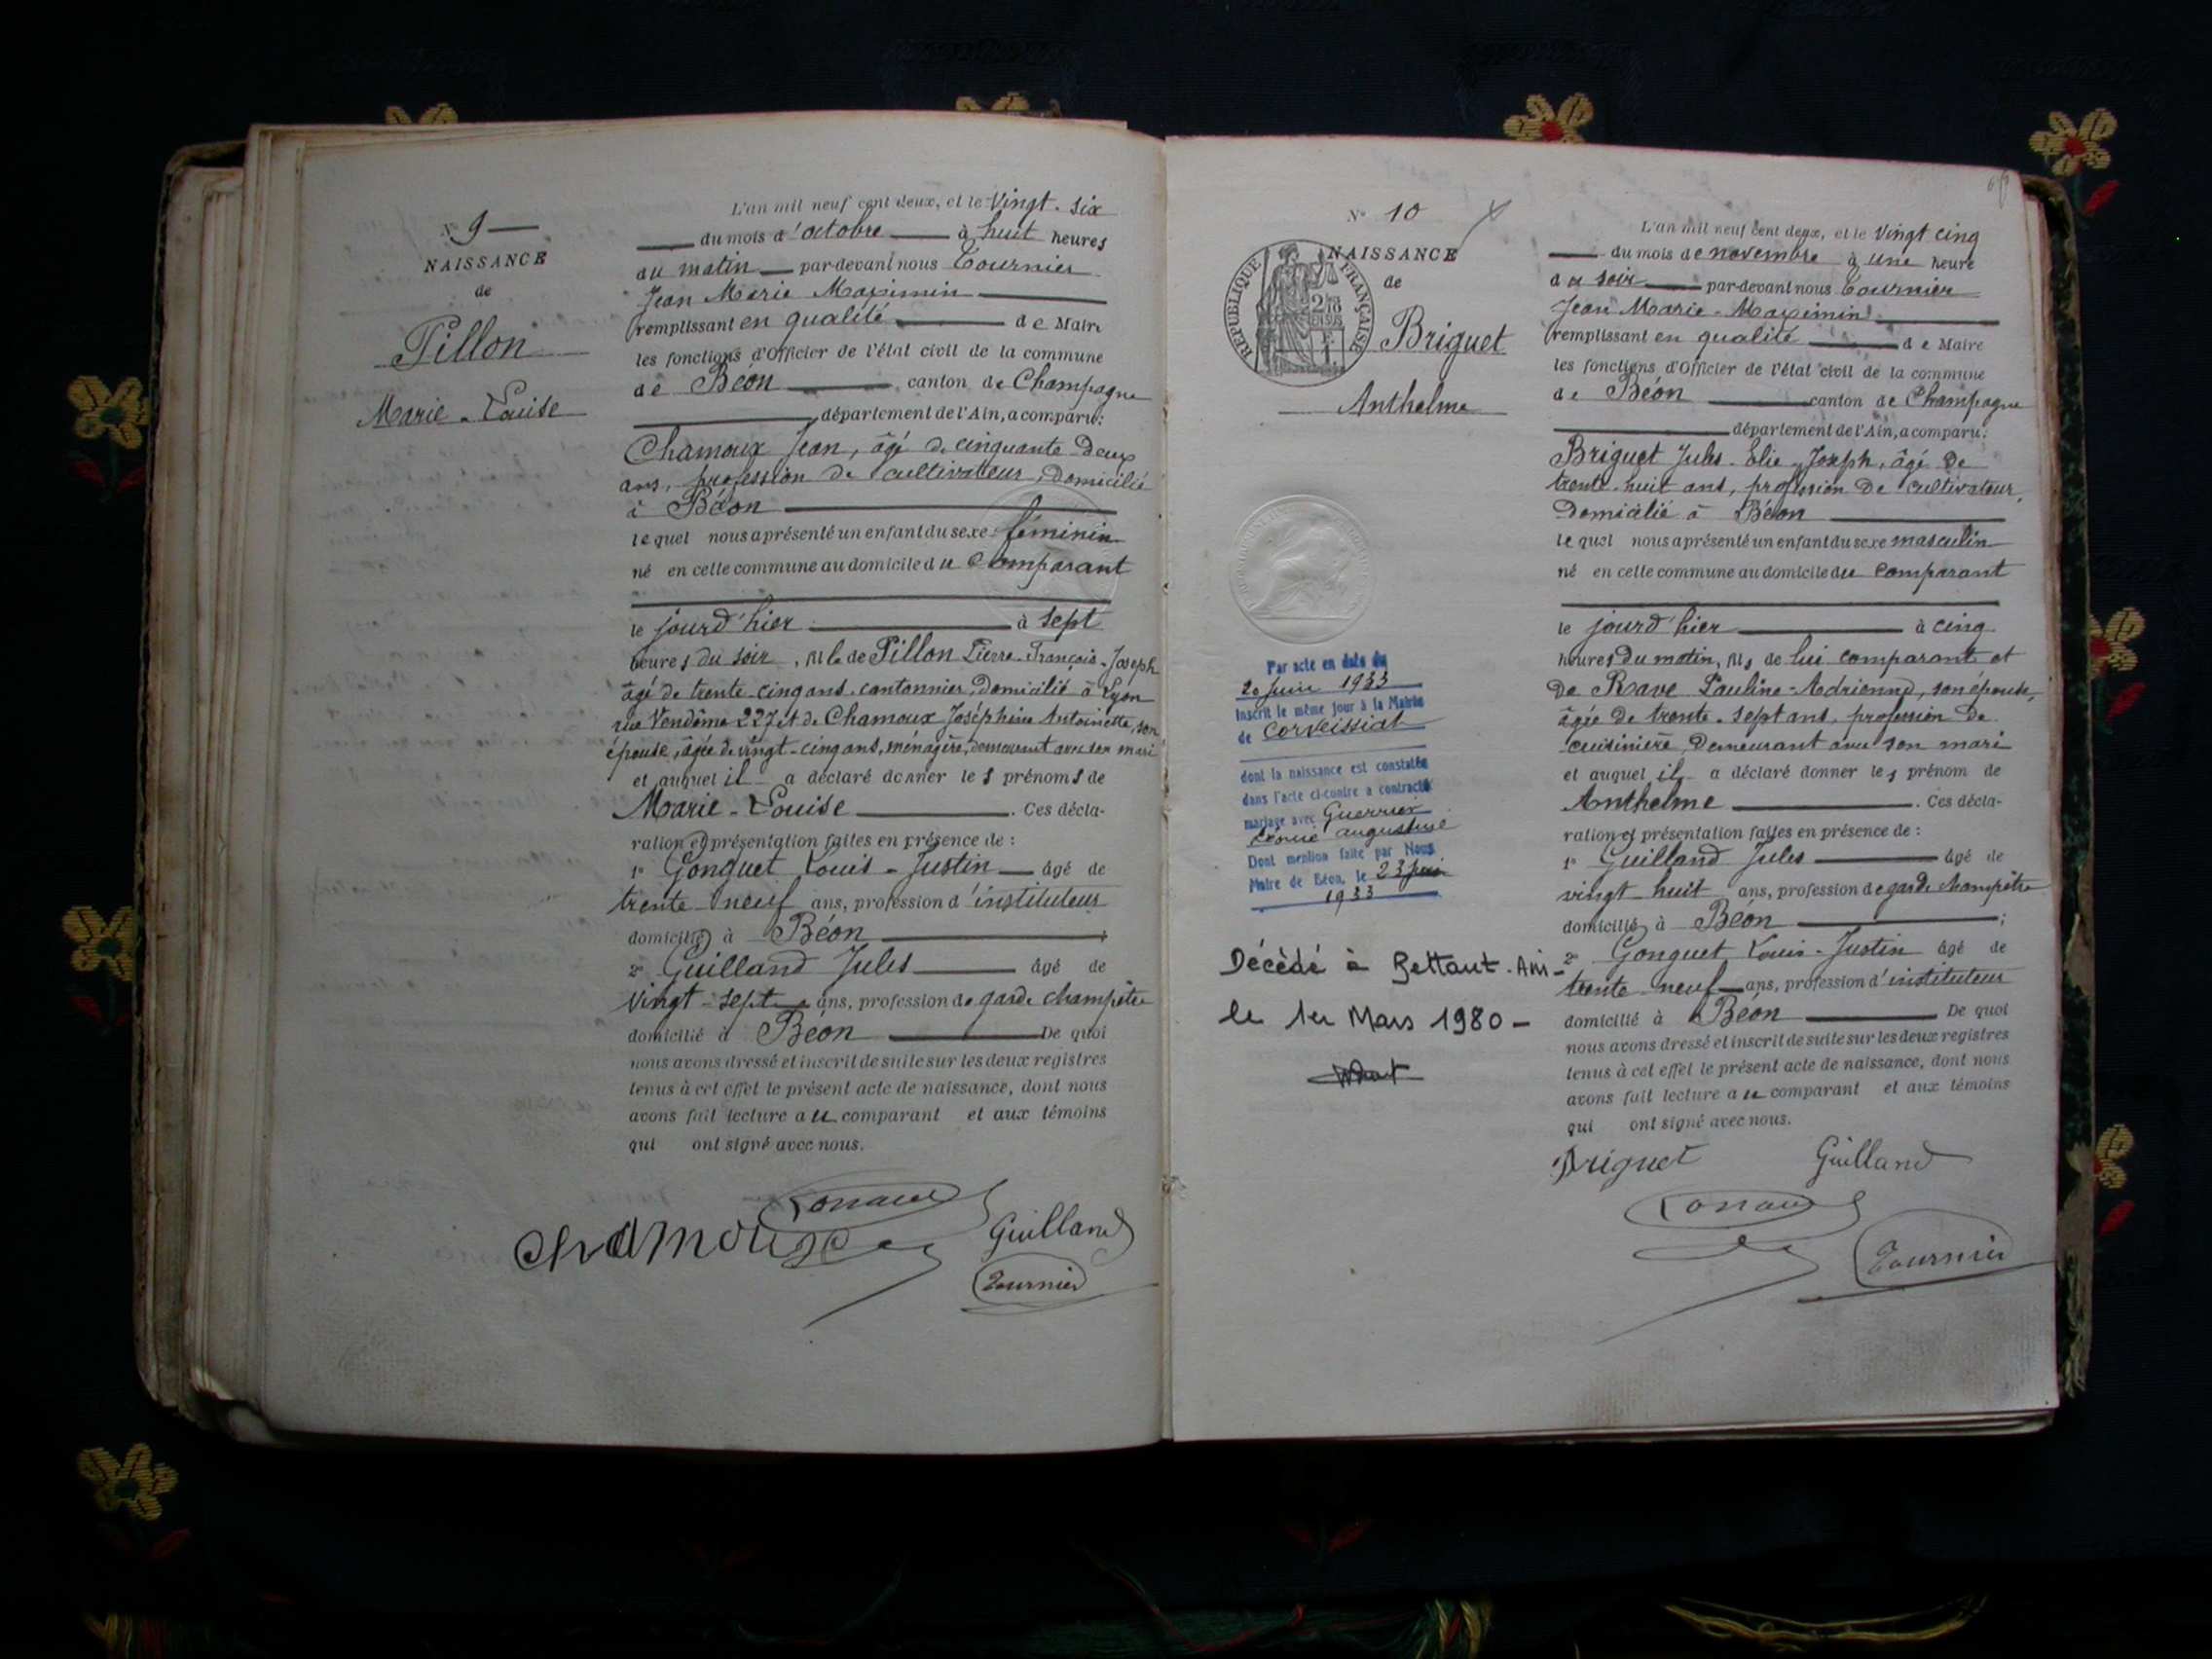 N° 9
NAISSANCE
de
Pillon
Marie-Louise
L'an mil neuf cent deux, et le vingt-six
du mois d'octobre à huit heures
du matin par-devant nous Tournier
Jean Marie Maximin
remplissant en qualité de Maire
les fonctions d'Officier de l'état civil de la commune
de Béon, canton de Champagne
département de l'Ain, a comparu:
Chamoux Jean, âgé de cinquante-deux
ans, profession de cultivateur, domicilié
à Béon
lequel nous a présenté un enfant du sexe féminin
né en cette commune au domicile du comparant
le jourd'hier à sept
heures du soir, fille de Pillon Pierre-François-Joseph
âgé de trente-cinq ans, cantonnier, domicilié à Lyon
rue Vendôme 227 et de Chamoux Joséphine Antoinette, son
épouse, âgée de vingt-cinq ans, ménagère, demeurant avec son mari
et auquel il a déclaré donner les prénoms de
Marie-Louise. Ces décla-
ration et présentation faites en présence de :
1° Gonguet Louis-Justin âgé de
trente-neuf ans, profession d'instituteur
domicilié à Béon ;
2° Guilland Jules âgé de
vingt-sept ans, profession de garde champêtre
domicilié à Béon De quoi
nous avons dressé et inscrit de suite sur les deux registres
tenus à cet effet le présent acte de naissance, dont nous
avons fait lecture au comparant et aux témoins
qui ont signé avec nous.
Chamoux
Guilland
Tournier
N° 10
NAISSANCE
de
RÉPUBLIQUE FRANÇAISE
Briguet
Anthelme
Par acte en date du
20 Juin 1933
Inscrit le même jour à la Mairie
de Corveissiat
dont la naissance est constatée
dans l'acte ci-contre a contracté
mariage avec Guerrier
augustine
Dont mention faite par Nous
Maire de Béon, le 23 Juin
1933
Décédé à Bettant-Ain-
le 1er Mars 1980-
L'an mil neuf cent deux, et le vingt cinq
du mois de novembre à une heure
du soir par-devant nous Tournier
Jean Marie-Maximin
remplissant en qualité de Maire
les fonctions d'Officier de l'état civil de la commune
de Béon canton de Champagne
département de l'Ain, a comparu:
Briguet Jules-Elie-Joseph, âgé de
trente-huit ans, profession de cultivateur,
domicilié à Béon
lequel nous a présenté un enfant du sexe masculin
né en cette commune au domicile du comparant
le jourd'hier à cinq
heures du matin, fils de lui comparant et
de Rave Pauline-Adrienne, son épouse,
âgée de trente-sept ans, profession de
cuisinière, demeurant avec son mari
et auquel il a déclaré donner les prénom de
Anthelme. Ces décla-
ration et présentation faites en présence de :
1° Guilland Jules âgé de
vingt-huit ans, profession de garde champêtre
domicilié à Béon ;
2° Gonguet Louis-Justin âgé de
trente-neuf ans, profession d'instituteur
domicilié à Béon De quoi
nous avons dressé et inscrit de suite sur les deux registres
tenus à cet effet le présent acte de naissance, dont nous
avons fait lecture au comparant et aux témoins
qui ont signé avec nous.
Briguet Guilland
Tournier